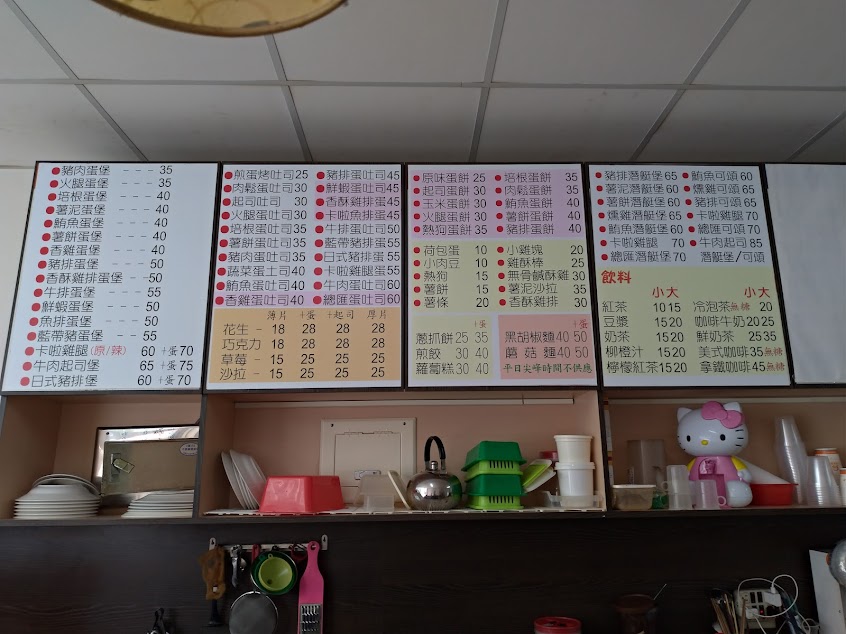 豬肉蛋堡 --- 35
火腿蛋堡 --- 35
培根蛋堡 --- 40
薯泥蛋堡 --- 40
鮪魚蛋堡 --- 40
薯餅蛋堡 --- 40
香雞蛋堡 --- 40
豬排蛋堡 --- 50
香酥雞排蛋堡 -- 50
牛排蛋堡 -- 55
鮮蝦蛋堡 -- 50
魚排蛋堡 -- 50
藍帶豬蛋堡 -- 55
卡啦雞腿(原/辣) 60 +蛋70
牛肉起司堡 65 +蛋75
日式豬排堡 60 +蛋70
煎蛋烤吐司25
肉鬆蛋吐司30
起司吐司 30
火腿蛋吐司30
培根蛋吐司35
薯餅蛋吐司35
豬肉蛋吐司35
蔬菜蛋土司40
鮪魚蛋吐司40
香雞蛋吐司40
豬排蛋吐司45
鮮蝦蛋吐司45
香酥雞排蛋45
卡啦魚排蛋45
牛排蛋吐司50
藍帶豬排蛋55
日式豬排蛋55
卡啦雞腿蛋55
牛肉蛋吐司60
總匯蛋吐司60
薄片 +蛋 +起司 厚片
花生 - 18 28 28 28
巧克力 - 18 28 28 28
草莓 - 15 25 25 25
沙拉 - 15 25 25 25
原味蛋餅25
起司蛋餅30
玉米蛋餅30
火腿蛋餅30
熱狗蛋餅30
培根蛋餅 35
肉鬆蛋餅 35
鮪魚蛋餅 40
薯餅蛋餅 40
豬排蛋餅 40
荷包蛋 10
小肉豆 10
熱狗 15
薯餅 15
薯條 20
小雞塊 20
雞酥棒 25
無骨鹹酥雞30
薯泥沙拉 35
香酥雞排 30
+蛋
蔥抓餅25 35
煎餃 30 40
蘿蔔糕30 40
+蛋
黑胡椒麵40 50
蘑菇麵40 50
平日尖峰時間不供應
豬排潛艇堡65
薯泥潛艇堡60
培根潛艇堡65
燻雞潛艇堡65
鮪魚潛艇堡60
卡啦雞腿 70
總匯潛艇堡70
鮪魚可頌60
燻雞可頌65
豬排可頌65
卡啦雞腿70
總匯可頌70
牛肉起司85
潛艇堡/可頌
飲料
小 大
紅茶 10 15
豆漿 15 20
奶茶 15 20
柳橙汁 15 20
檸檬紅茶15 20
小 大
冷泡茶無糖 20
咖啡牛奶20 25
鮮奶茶 25 35
美式咖啡35無糖
拿鐵咖啡45無糖